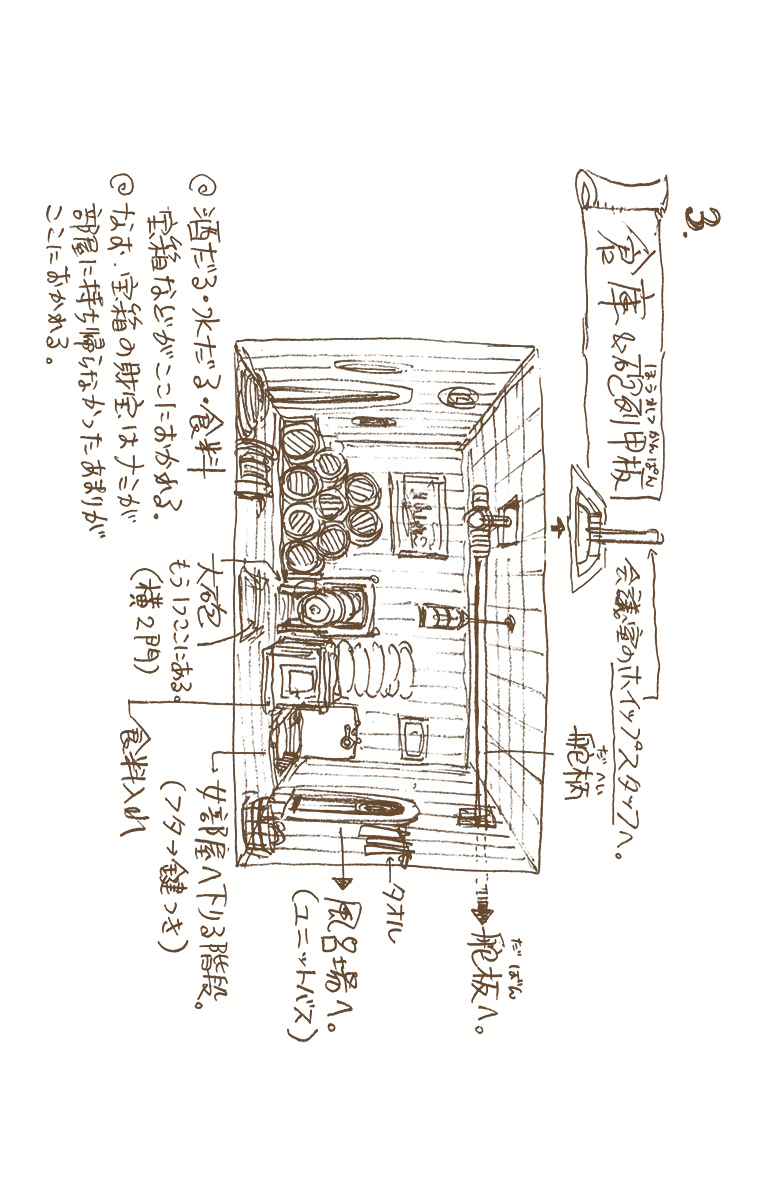 3.
倉庫&砲列甲板
ほうれつかんぱん
会議室のホイップスタッフへ。
舵柄
だへい
舵板へ。
だばん
タオル
風呂場へ。
(ユニットバス)
女部屋へ下りる階段。
(フタ→鍵つき)
食料入れ
大砲
もう1つここにある。
(横2門)
◎酒だる・水だる・食料
宝箱などがここにおかれる。
◎なお、宝箱の財宝はナミが
部屋に持ち帰らなかったあまりが
ここにおかれる。